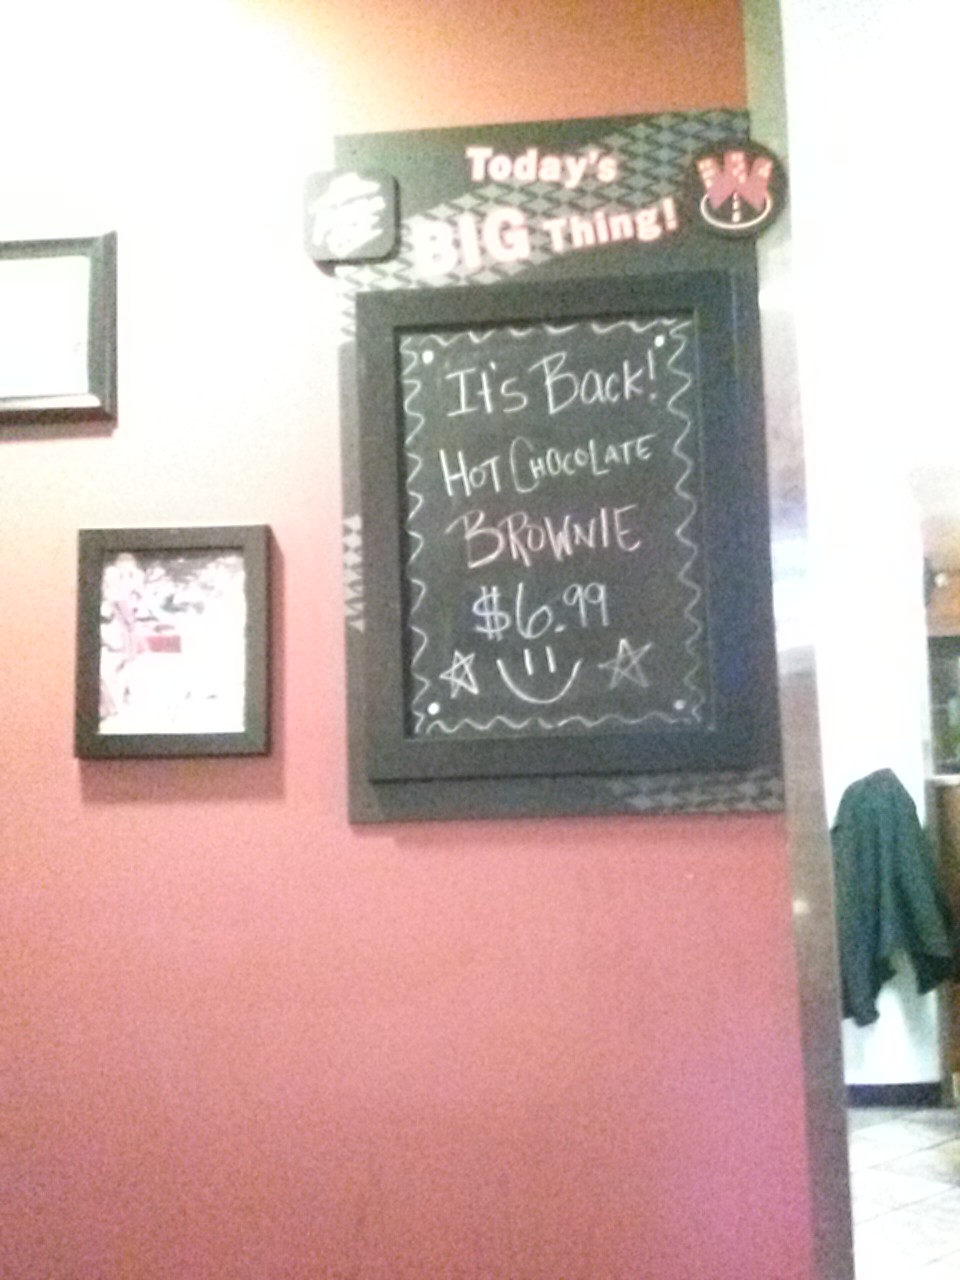 Today's
BIG Thing!
It's Back!
HOT CHOCOLATE
BROWNIE
$6.99